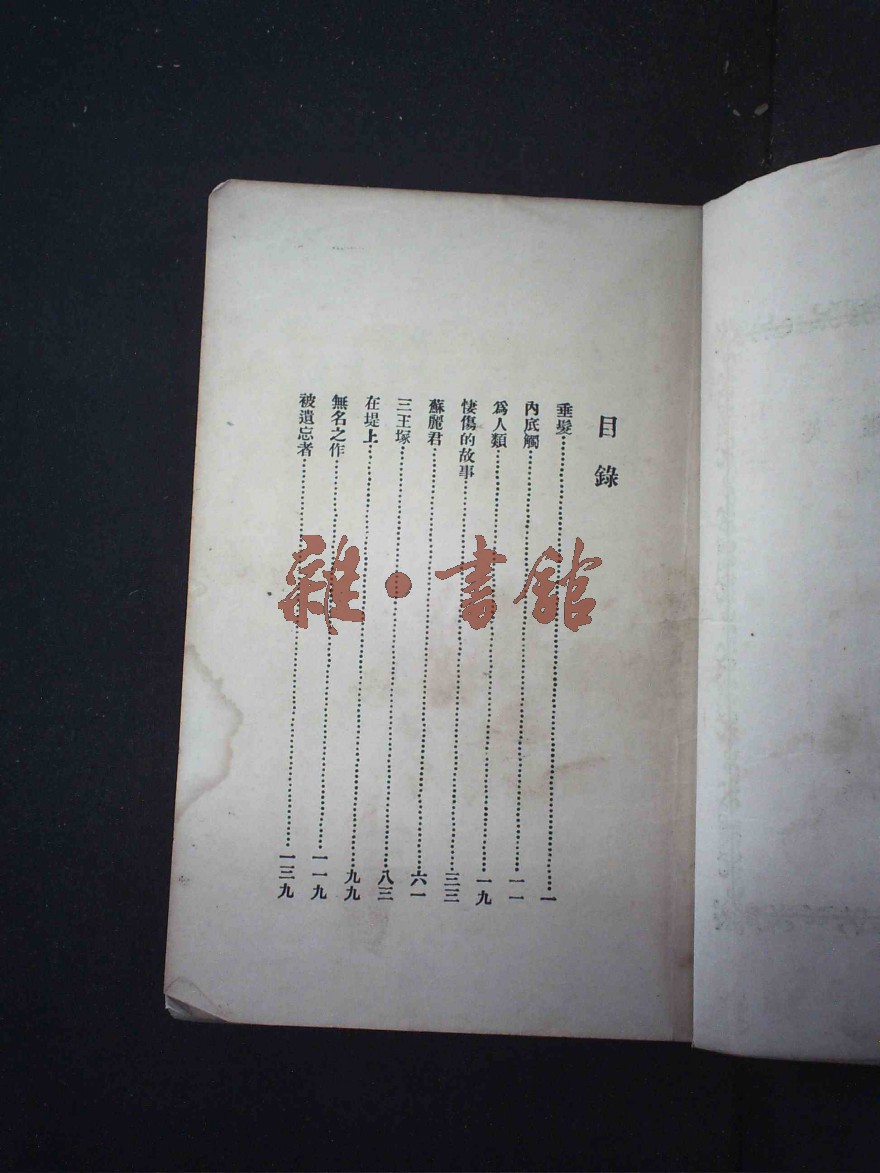 目錄
垂髮……一
內底觸……一一
爲人類……一九
悽傷的故事……三三
蘇麗君……六一
三王塚……八三
在堤上……九九
無名之作……一一九
被遺忘者……一三九
雜·書館